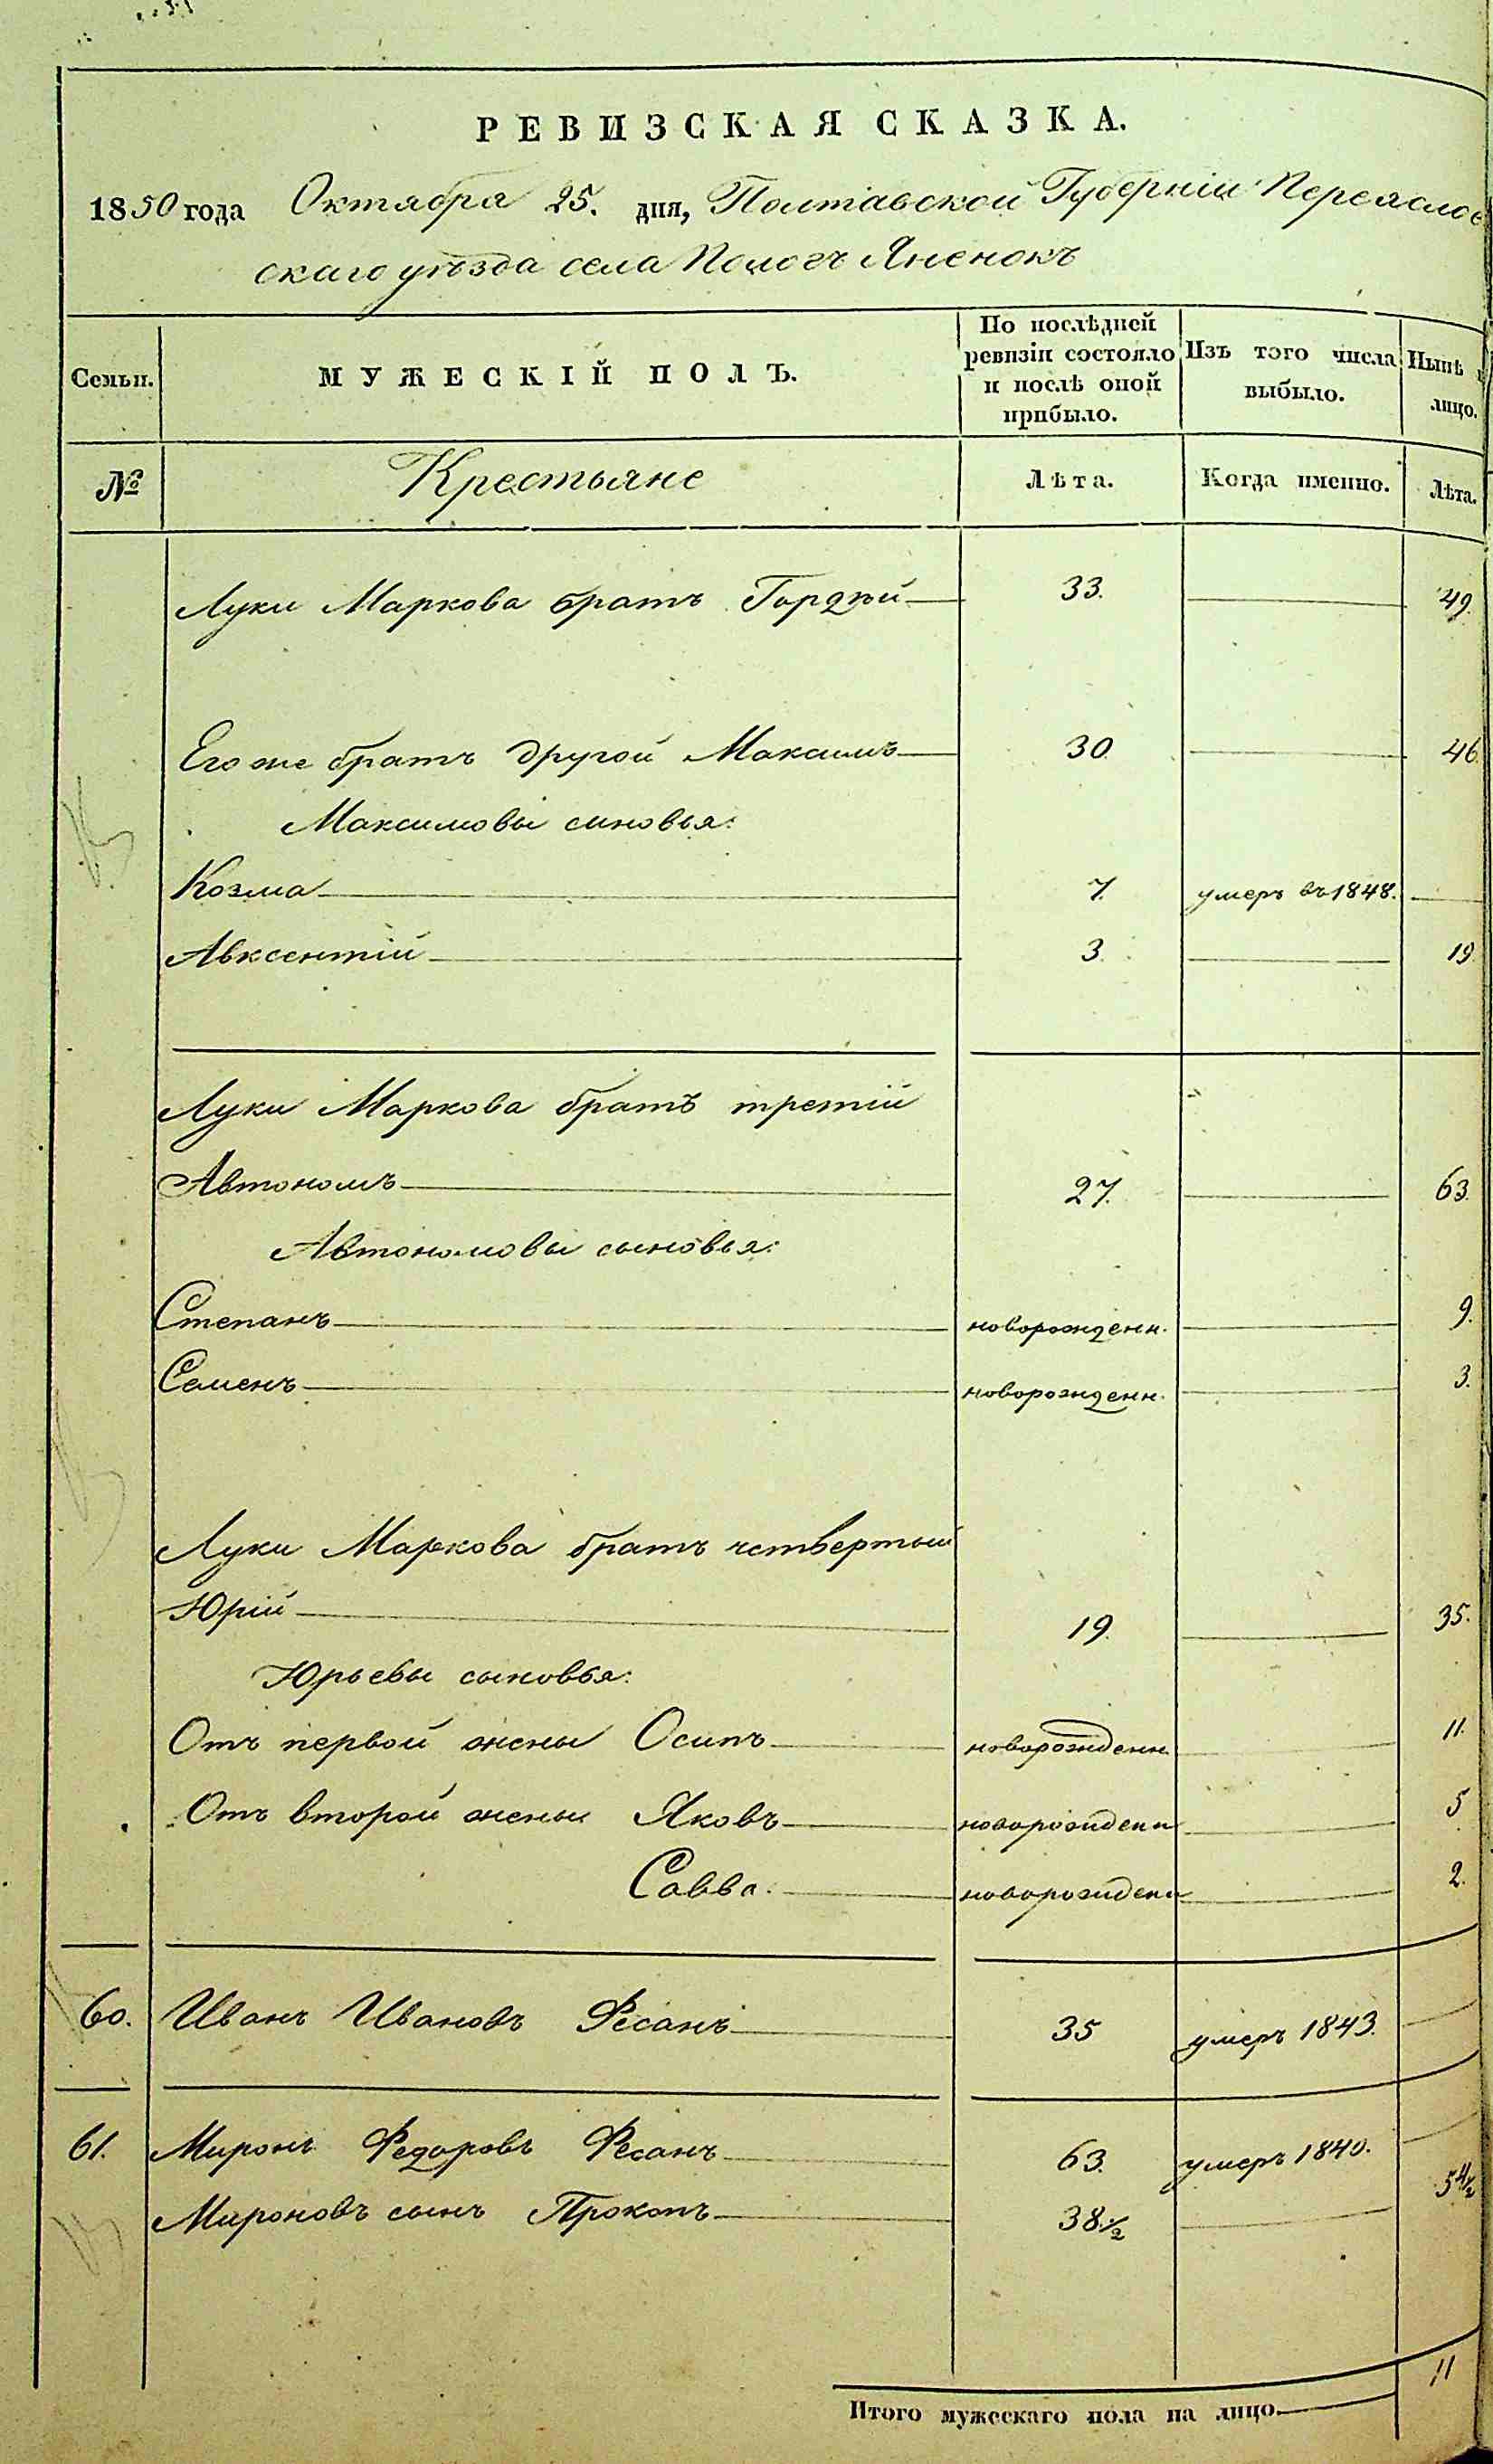 РЕВИЗСКАЯ СКАЗКА.
1850 года Октября 25. дня, Полтавской Губерніи Переяслов
скаго уѣзда села Пологъ Яненокъ
Семьи. МУЖЕСКІЙ ПОЛЪ. По послѣдней ревизіи состояло и послѣ оной прибыло. Изъ того числа выбыло. Нынѣ лицо.
№ Крестьяне Лѣта. Когда именно. Лѣта.
Луки Маркова братъ Гордѣй 33. 49.
Его же братъ другой Максимъ 30 46
Максимовы синовья:
Козма 7. умеръ въ 1848.
Авксентій 3. 19.
Луки Маркова братъ третій
Автономъ 27. 63.
Автономовы сыновья:
Степанъ новорожденн. 9.
Семенъ новорожденн. 3.
Луки Маркова братъ четвертый
Юрій 19. 35.
Юрьевы сыновья:
Отъ первой жены Осипъ новорожденн. 11.
Отъ второй жены Яковъ новорожденн 5
Савва. новорожденн 2.
60. Иванъ Ивановъ Фесанъ 35 умеръ 1843.
61. Миронъ Федоровъ Фесанъ 63. умеръ 1840.
Мироновъ сынъ Прокопъ 38 1/2 54 1/2
Итого мужескаго пола на лицо 11